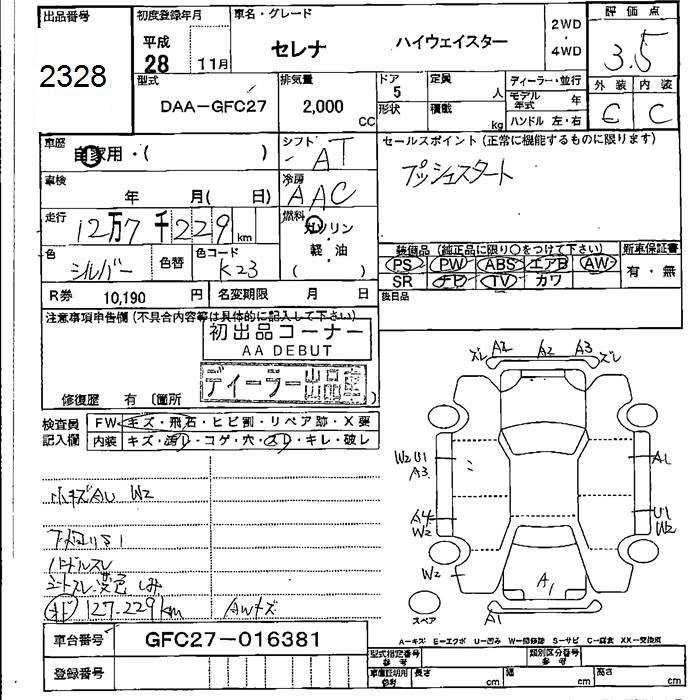 出品番号
2328
初度登録年月
平成
28 11月
車名・グレード
セレナ ハイウェイスター
2WD
・
4WD
評価点
3.5
型式
DAA-GFC27
排気量
2,000
CC
ドア
5
形状
定員
人
積載
kg
ディーラー・並行
モデル年式 年
ハンドル 左・右
外装 内装
C
車歴
自家用・( )
シフト
AT
セールスポイント (正常に機能するものに限ります)
プッシュスタート
車検
年 月( 日)
冷房
AAC
走行
12万7千229km
燃料
ガソリン
軽・油
( )
色
シルバー
色替
色コード
K23
装備品 (純正品に限り○をつけて下さい)
PS PW ABS エアB AW
SR ナビ TV カワ
新車保証書
有・無
後日品
R券 10,190 円
名変期限 月 日
注意事項申告欄 (不具合内容等は具体的に記入して下さい)
初出品コーナー
AA DEBUT
ディーラー出品車
修復歴 有 〔箇所 〕
検査員
記入欄
FW キズ・飛石・ヒビ割・リペア跡・X要
内装 キズ・汚れ・コゲ・穴・スレ・キレ・破レ
小キズAU W2
ハンドルスレ
シートスレ 変色 しみ
オド 127.229km AWキズ
ズレ A2 A2 A3 ズレ
W2 U1
A3
A1
A4
W2
U1
W2
W2
A1
A1
スペア
A-キズ E-エクボ U-凹み W-補修跡 S-サビ C-腐食 XX-交換済
車台番号
GFC27-016381
登録番号
型式指定番号
参考
類別区分番号
参考
車庫証明用
参考
長さ cm
幅 cm
高さ cm